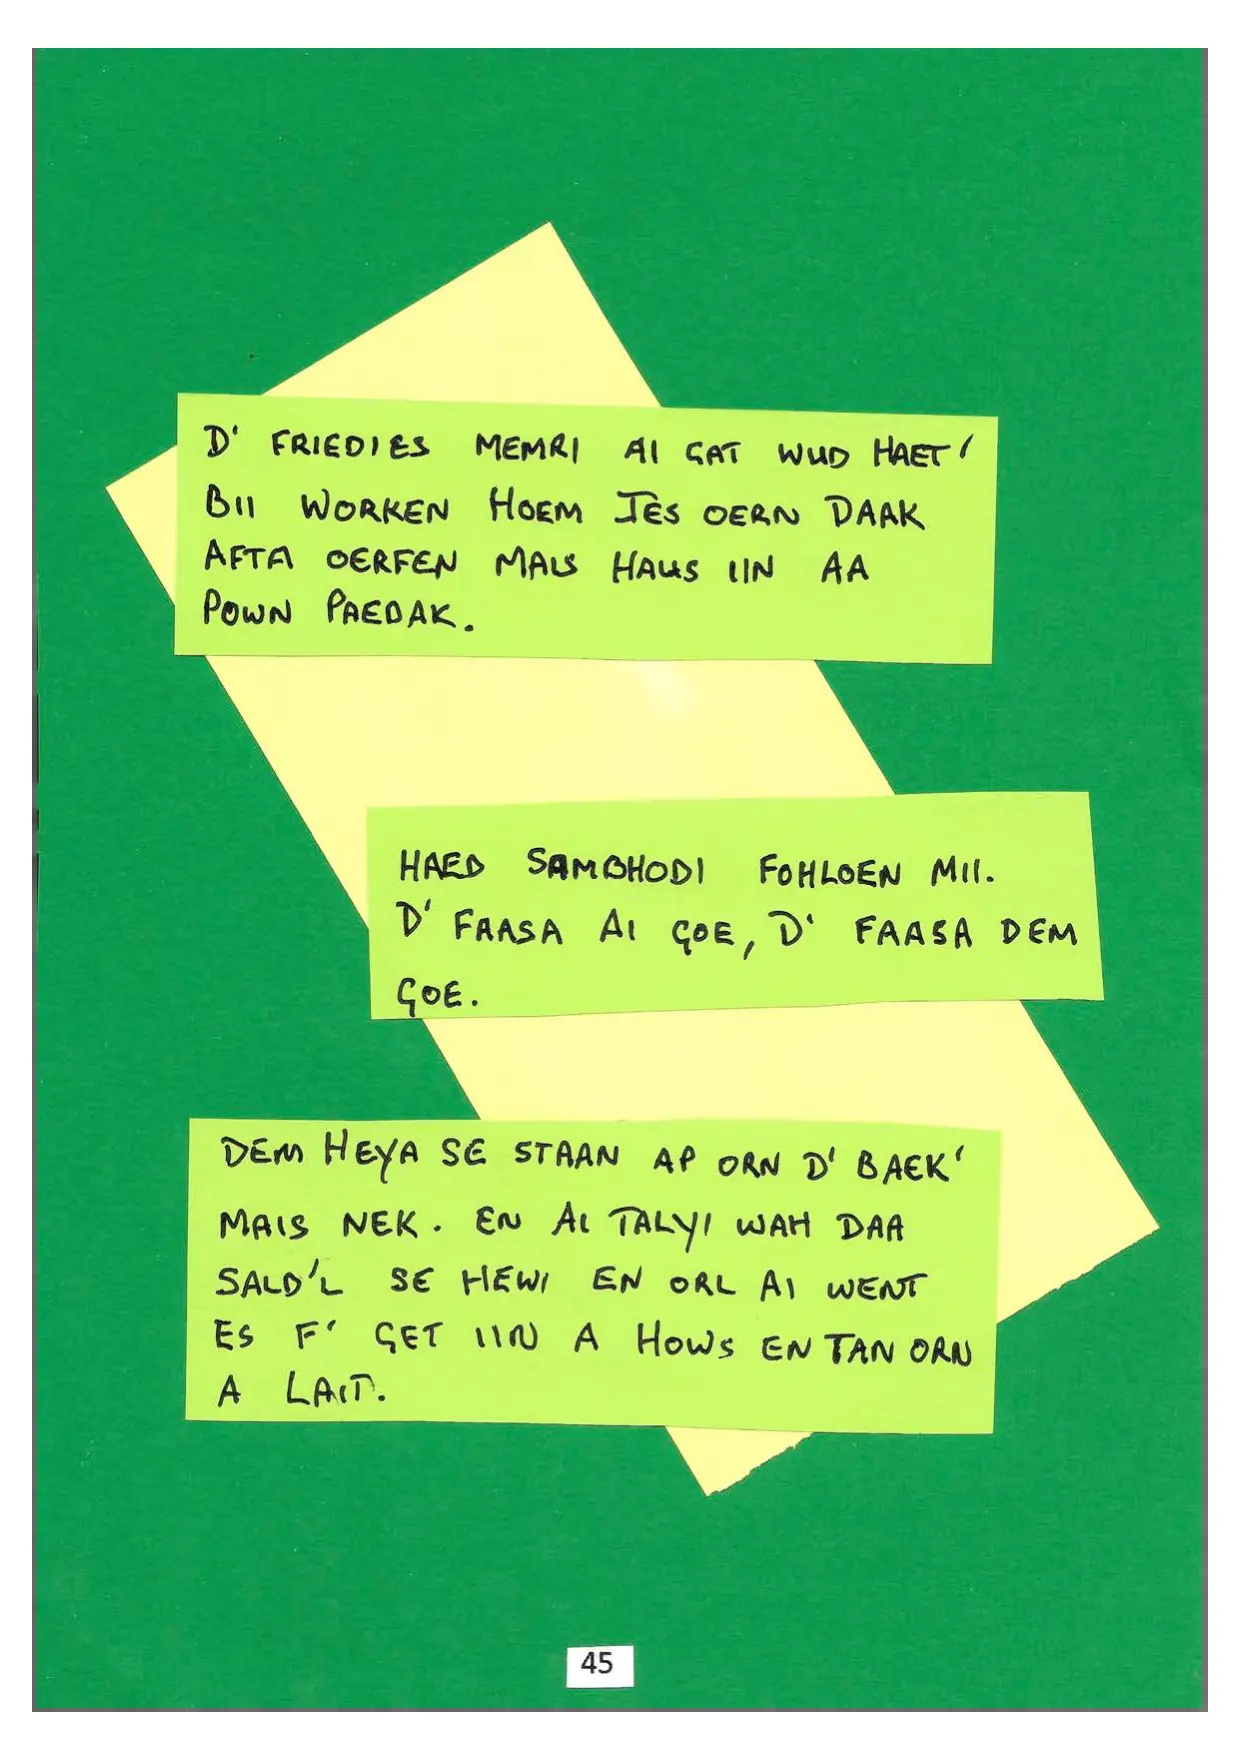 D' FRIEDIES MEMRI AI GAT WUD HAET'
BII WORKEN HOEM JES OERN DAAK
AFTA OERFEN MAIS HAUS IIN AA
POWN PAEDAK.
HAED SAMBHODI FOHLOEN MII.
D' FAASA AI GOE, D' FAASA DEM
GOE.
DEM HEYA SE STAAN AP ORN D' BAEK'
MAIS NEK. EN AI TALYI WAH DAA
SALD'L SE HEWI EN ORL AI WENT
ES F' GET IIN A HOWS EN TAN ORN
A LAIT.
45